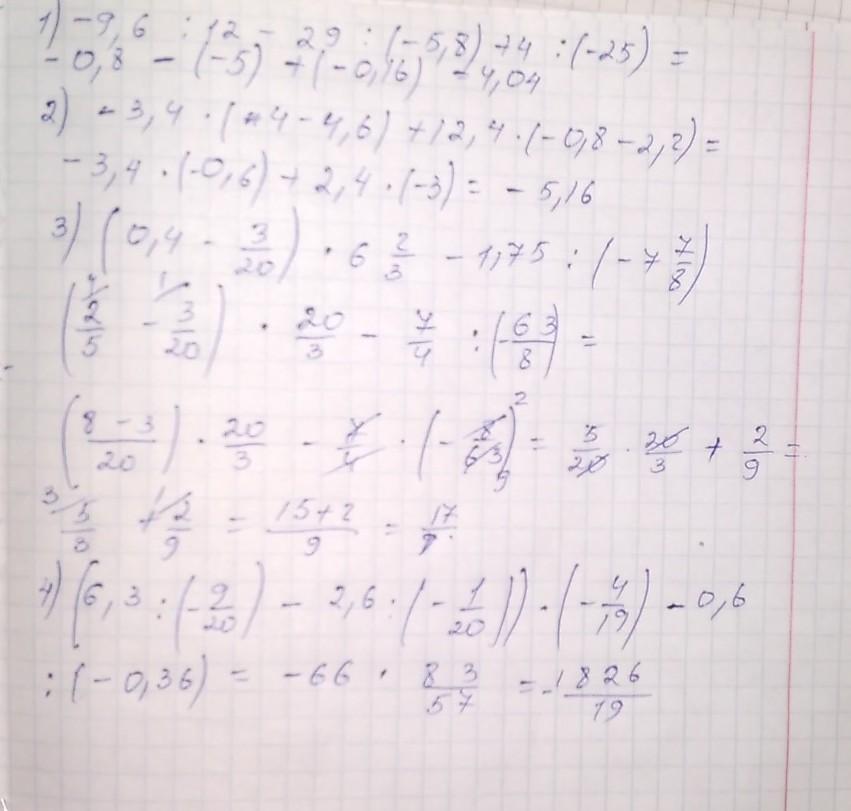 1) -9,6 : 12 - 29 : (-5,8) + 4 : (-25) =
-0,8 - (-5) + (-0,16) = 4,04
2) -3,4 · (4 - 4,6) + 12,4 · (-0,8 - 2,2) =
-3,4 · (-0,6) + 2,4 · (-3) = -5,16
3) (0,4 - 3/20) · 6 2/3 - 1,75 : (-7 7/8)
(2/5 - 3/20) · 20/3 - 7/4 : (-63/8) =
((8 - 3)/20) · 20/3 - 7/4 · (-8/63) = 5/20 · 20/3 + 2/9 =
5/3 + 2/9 = (15+2)/9 = 17/9
4) (6,3 : (-9/20) - 2,6 : (-1/20)) · (-4/19) - 0,6
: (-0,36) = -66 · 83/57 = -1826/19